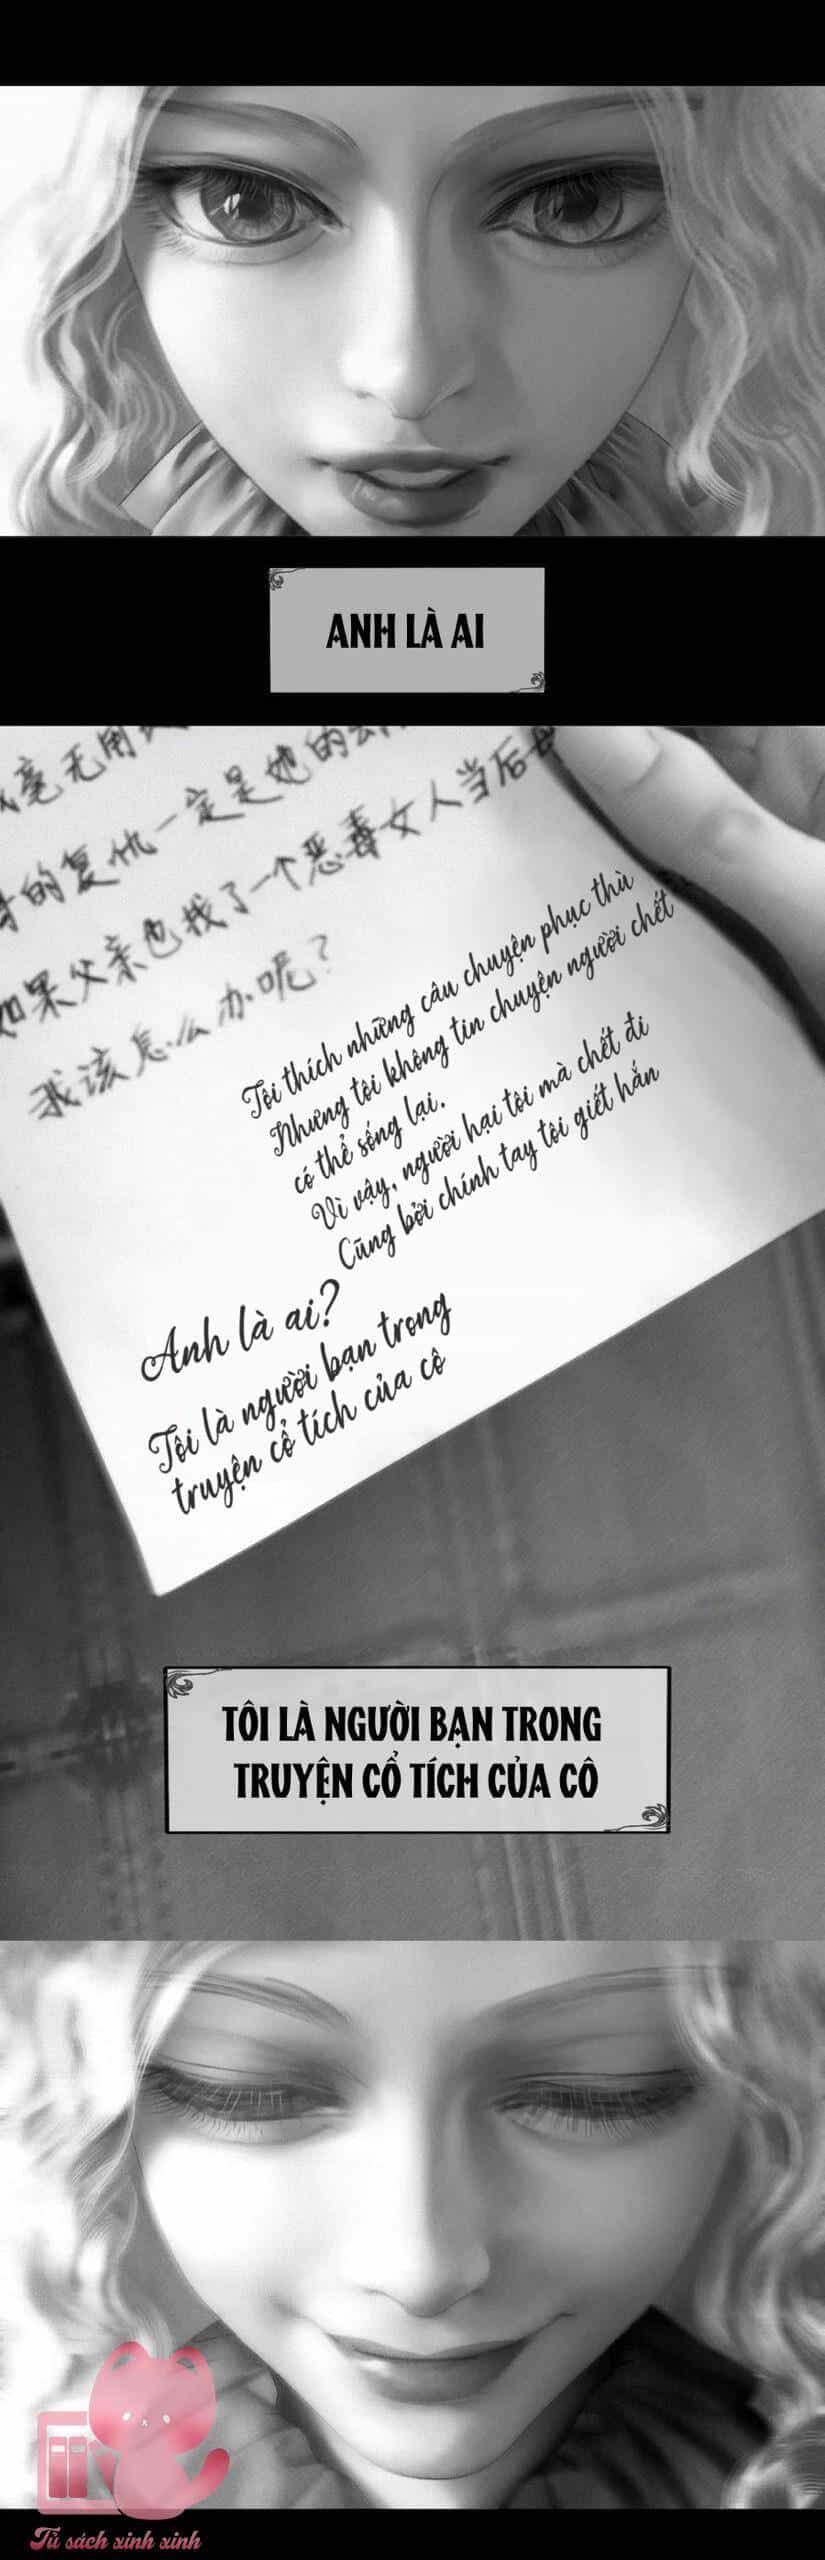 ANH LÀ AI
毫无用
的复仇一定是她的
如果父亲也找了一个恶毒女人当后
我该怎么办呢?
Tôi thích những câu chuyện phục thù
Nhưng tôi không tin chuyện người chết
có thể sống lại.
Vì vậy, người hại tôi mà chết đi
Cũng bởi chính tay tôi giết hắn
Anh là ai?
Tôi là người bạn trong
truyện cổ tích của cô
TÔI LÀ NGƯỜI BẠN TRONG
TRUYỆN CỔ TÍCH CỦA CÔ
Tủ sách xinh xinh